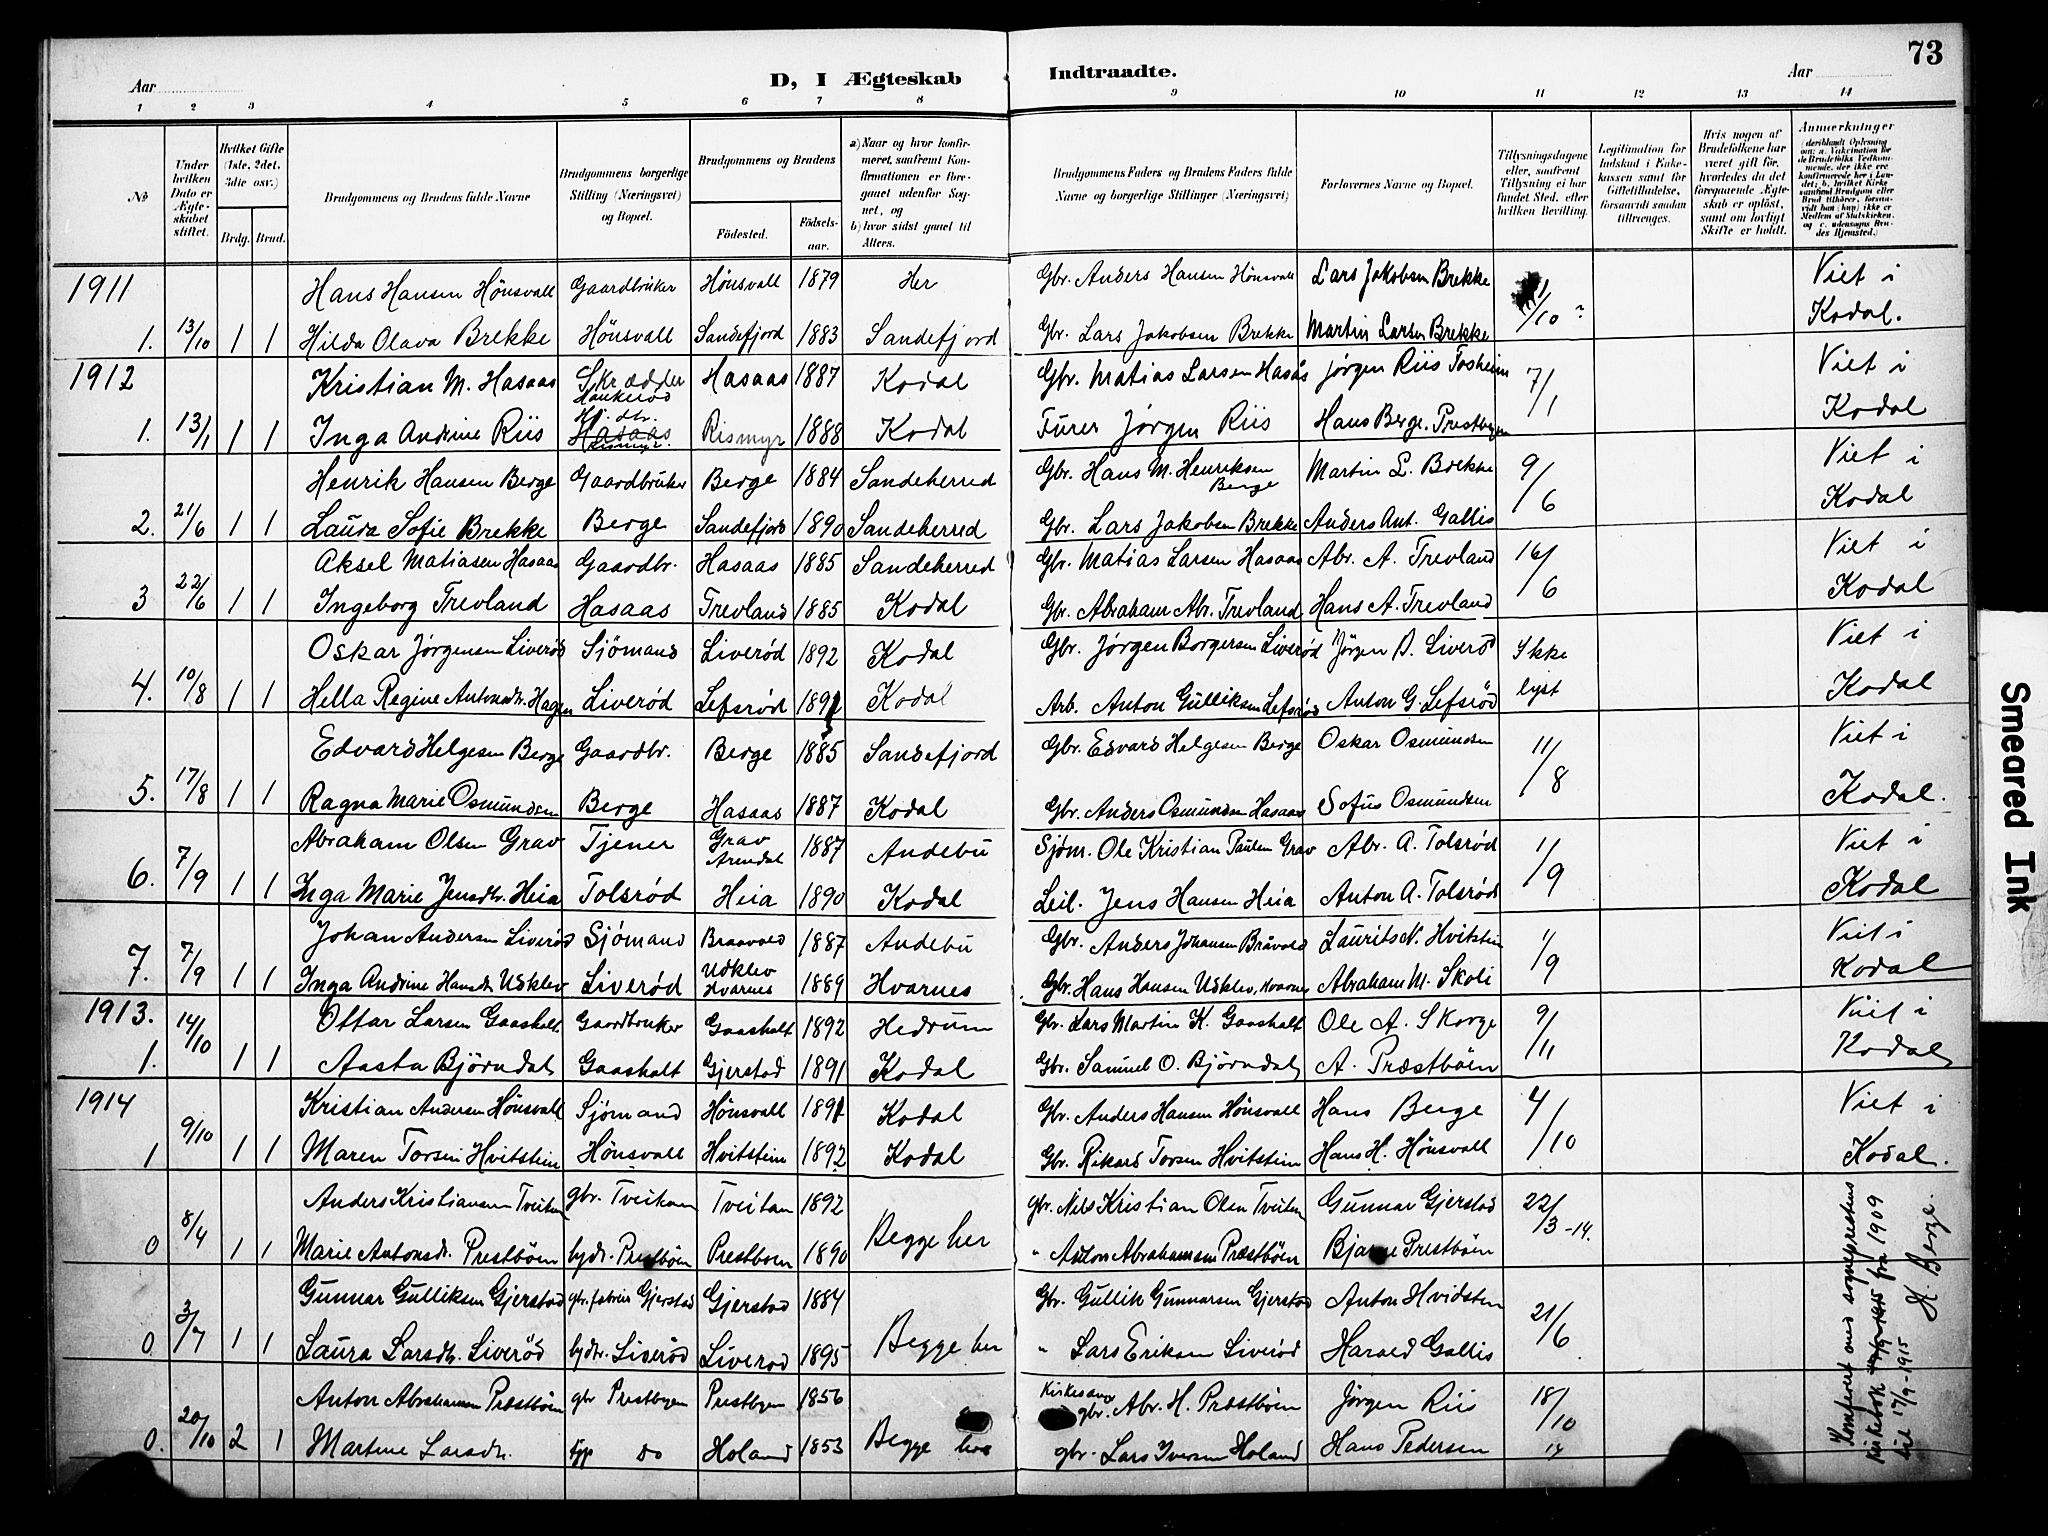 73
Aar
D, I Ægteskab Indtraadte.
Aar
1 2 3 4 5 6 7 8 9 10 11 12 13 14
No
Under hvilken Dato er Ægteskabet stiftet.
Hvilket Gifte (1ste, 2det, 3die osv.)
Brdg. Brud.
Brudgommens og Brudens fulde Navne
Brudgommens borgerlige Stilling (Næringsvei) og Bopæl.
Brudgommens og Brudens
Födested. Födsels-aar.
a) Naar og hvor konfirmeret, saafremt Konfirmationen er foregaaet udenfor Sognet, og
b) hvor sidst gaaet til Alters.
Brudgommens Faders og Brudens Faders fulde Navne og borgerlige Stillinger (Næringsvei)
Forlovernes Navne og Bopæl.
Tillysningsdagene eller, saafremt Tillysning ei har fundet Sted, efter hvilken Bevilling.
Legitimation for Indskud i Enkekassen samt for Giftetilladelse, forsaavidt saadan tiltrænges.
Hvis nogen af Brudefolkene har været gift för, hvorledes da det foregaaende Ægteskab er oplöst, samt om lovligt Skifte er holdt.
Anmerkninger
1911 Hans Hansen Hönsvall Gaardbruker Hönsvall 1879 Her Gbr. Anders Hansen Hönsvall Lars Jakobsen Brekke 1/10 Viet i
1. 13/10 1 1 Hilda Olava Brekke Hönsvall Sandefjord 1883 Sandefjord Gbr. Lars Jakobsen Brekke Martin Larsen Brekke Kodal.
1912 Kristian M. Hasaas Skrædder Haukerød Hasaas 1887 Kodal Gbr. Matias Larsen Hasås Jørgen Riis Tosheim 7/1 Viet i
1. 13/1 1 1 Inga Andrine Riis Hasaas Rismyr. Rismyr 1888 Kodal Furer Jørgen Riis Hans Berge. Prestbyen Kodal
Henrik Hansen Berge Gaardbruker Berge 1884 Sandeherred Gbr. Hans M. Henriksen Berge Martin L. Brekke 9/6 Viet i
2. 21/6 1 1 Laura Sofie Brekke Berge Sandefjord 1890 Sandeherred Gbr. Lars Jakobsen Brekke Anders Ant. Gallis Kodal
Aksel Matiasen Hasaas Gaardbr. Hasaas 1885 Sandeherred Gbr. Matias Larsen Hasaas Abr. A. Trevland 16/6 Viet i
3 22/6 1 1 Ingeborg Trevland Hasaas Trevland 1885 Kodal Gbr. Abraham Abr. Trevland Hans A. Trevland Kodal
Oskar Jørgensen Liverød Sjömand Liverød 1892 Kodal Gbr. Jørgen Borgersen Liverød Jörgen B. Liveröd Ikke Viet i
4. 10/8 1 1 Hella Regine Antonsdr. Hagen Liverød Lefsrød 1891 Kodal Arb. Anton Gulliksen Lefsrød Anton G. Lefsröd lyst Kodal
Edvard Helgesen Berge Gaardbr. Berge 1885 Sandefjord Gbr. Edvard Helgesen Berge Oskar Osmundsen 11/8 Viet i
5. 17/8 1 1 Ragna Marie Osmundsen Berge Hasaas 1887 Kodal Gbr. Anders Osmundsen Hasaas Sofus Osmundsen Kodal.
Abraham Olsen Grav Tjener Grav Arendal 1887 Andebu Sjöm. Ole Kristian Paulsen Grav Abr. A. Tolsrød 1/9 Viet i
6. 7/9 1 1 Inga Marie Jensdtr. Heia Tolsrød Heia 1890 Kodal Leil. Jens Hansen Heia Anton A. Tolsrød Kodal
Johan Andersen Liverød Sjömand Braavold 1887 Andebu Gbr. Anders Johansen Bråvold Laurits N. Hvitstein 1/9 Viet i
7. 7/9 1 1 Inga Andrine Hansdr. Udklev Liverød Udklev Hvarnes 1889 Hvarnes Gbr. Hans Hansen Udklev, Kvarnes Abraham M. Skoli Kodal
1913. 14/10 Ottar Larsen Gaasholt Gaardbruker Gaasholt 1892 Hedrum Gbr. Lars Martin K. Gaasholt Ole A. Skorge 9/11 Viet i
1. 1 1 Aasta Björndal Gaasholt Gjerstad 1891 Kodal Gbr. Samuel O. Björndal A. Præstböen Kodal
1914 Kristian Andersen Hönsvall Sjömand Hönsvall 1891 Kodal Gbr. Anders Hansen Hönsvall Hans Berge 4/10 Viet i
1 9/10 1 1 Maren Torsen Hvitstein Hönsvall Hvitstein 1892 Kodal Gbr. Rikard Torsen Hvitstein Hans H. Hönsvall Kodal.
Anders Kristiansen Tveitan gbr. Tveitan Tveitan 1892 Begge her gbr. Nils Kristian Olsen Tveitan Gunnar Gjerstad 22/3-14.
0 8/4 1 1 Marie Antonsdr. Prestböen bydr. Prestböen Prestboen 1890 " Anton Abrahamsen Præstböen Bjarne Prestböen
Gunnar Gulliksen Gjerstad gbr. Gjerstad Gjerstad 1884 Begge her Gbr. Gullik Gunnarsen Gjerstad Anton Hvidsten 21/6
0. 3/7 1 1 Laura Larsdtr. Liveröd bydr. Liveröd Liverod 1895 " Lars Eriksen Liveröd Harald Gallis
Anton Abrahamsen Præstböen gbr Prestbyen Prestbyen 1856 Begge her Kirkesanger gbr. Abr. H. Præstböen Jörgen Riis 18/10
0. 20/10 2 1 Martine Larsdtr. do Holand 1853 gbr. Lars Iversen Holand Hans Pedersen 14
Konfereret med sogneprestens
kirkebok fra 1909
til 17/9-1915
H. Berge.
Smeared Ink